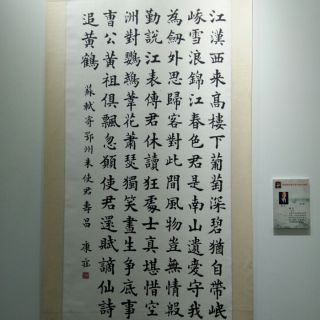 江漢西來高樓下葡萄深碧猶自帶岷
峨雪浪錦江春色君是南山遺愛守我
為劔外思歸客對此間風物豈無情殷
勤說江表傳君休讀狂處士真堪惜空
洲對鸚鵡葦花蕭瑟獨笑書生爭底事
曹公黃祖俱飄忽願使君還賦謫仙詩
追黃鶴
蘇軾寄鄂州朱使君壽昌 康